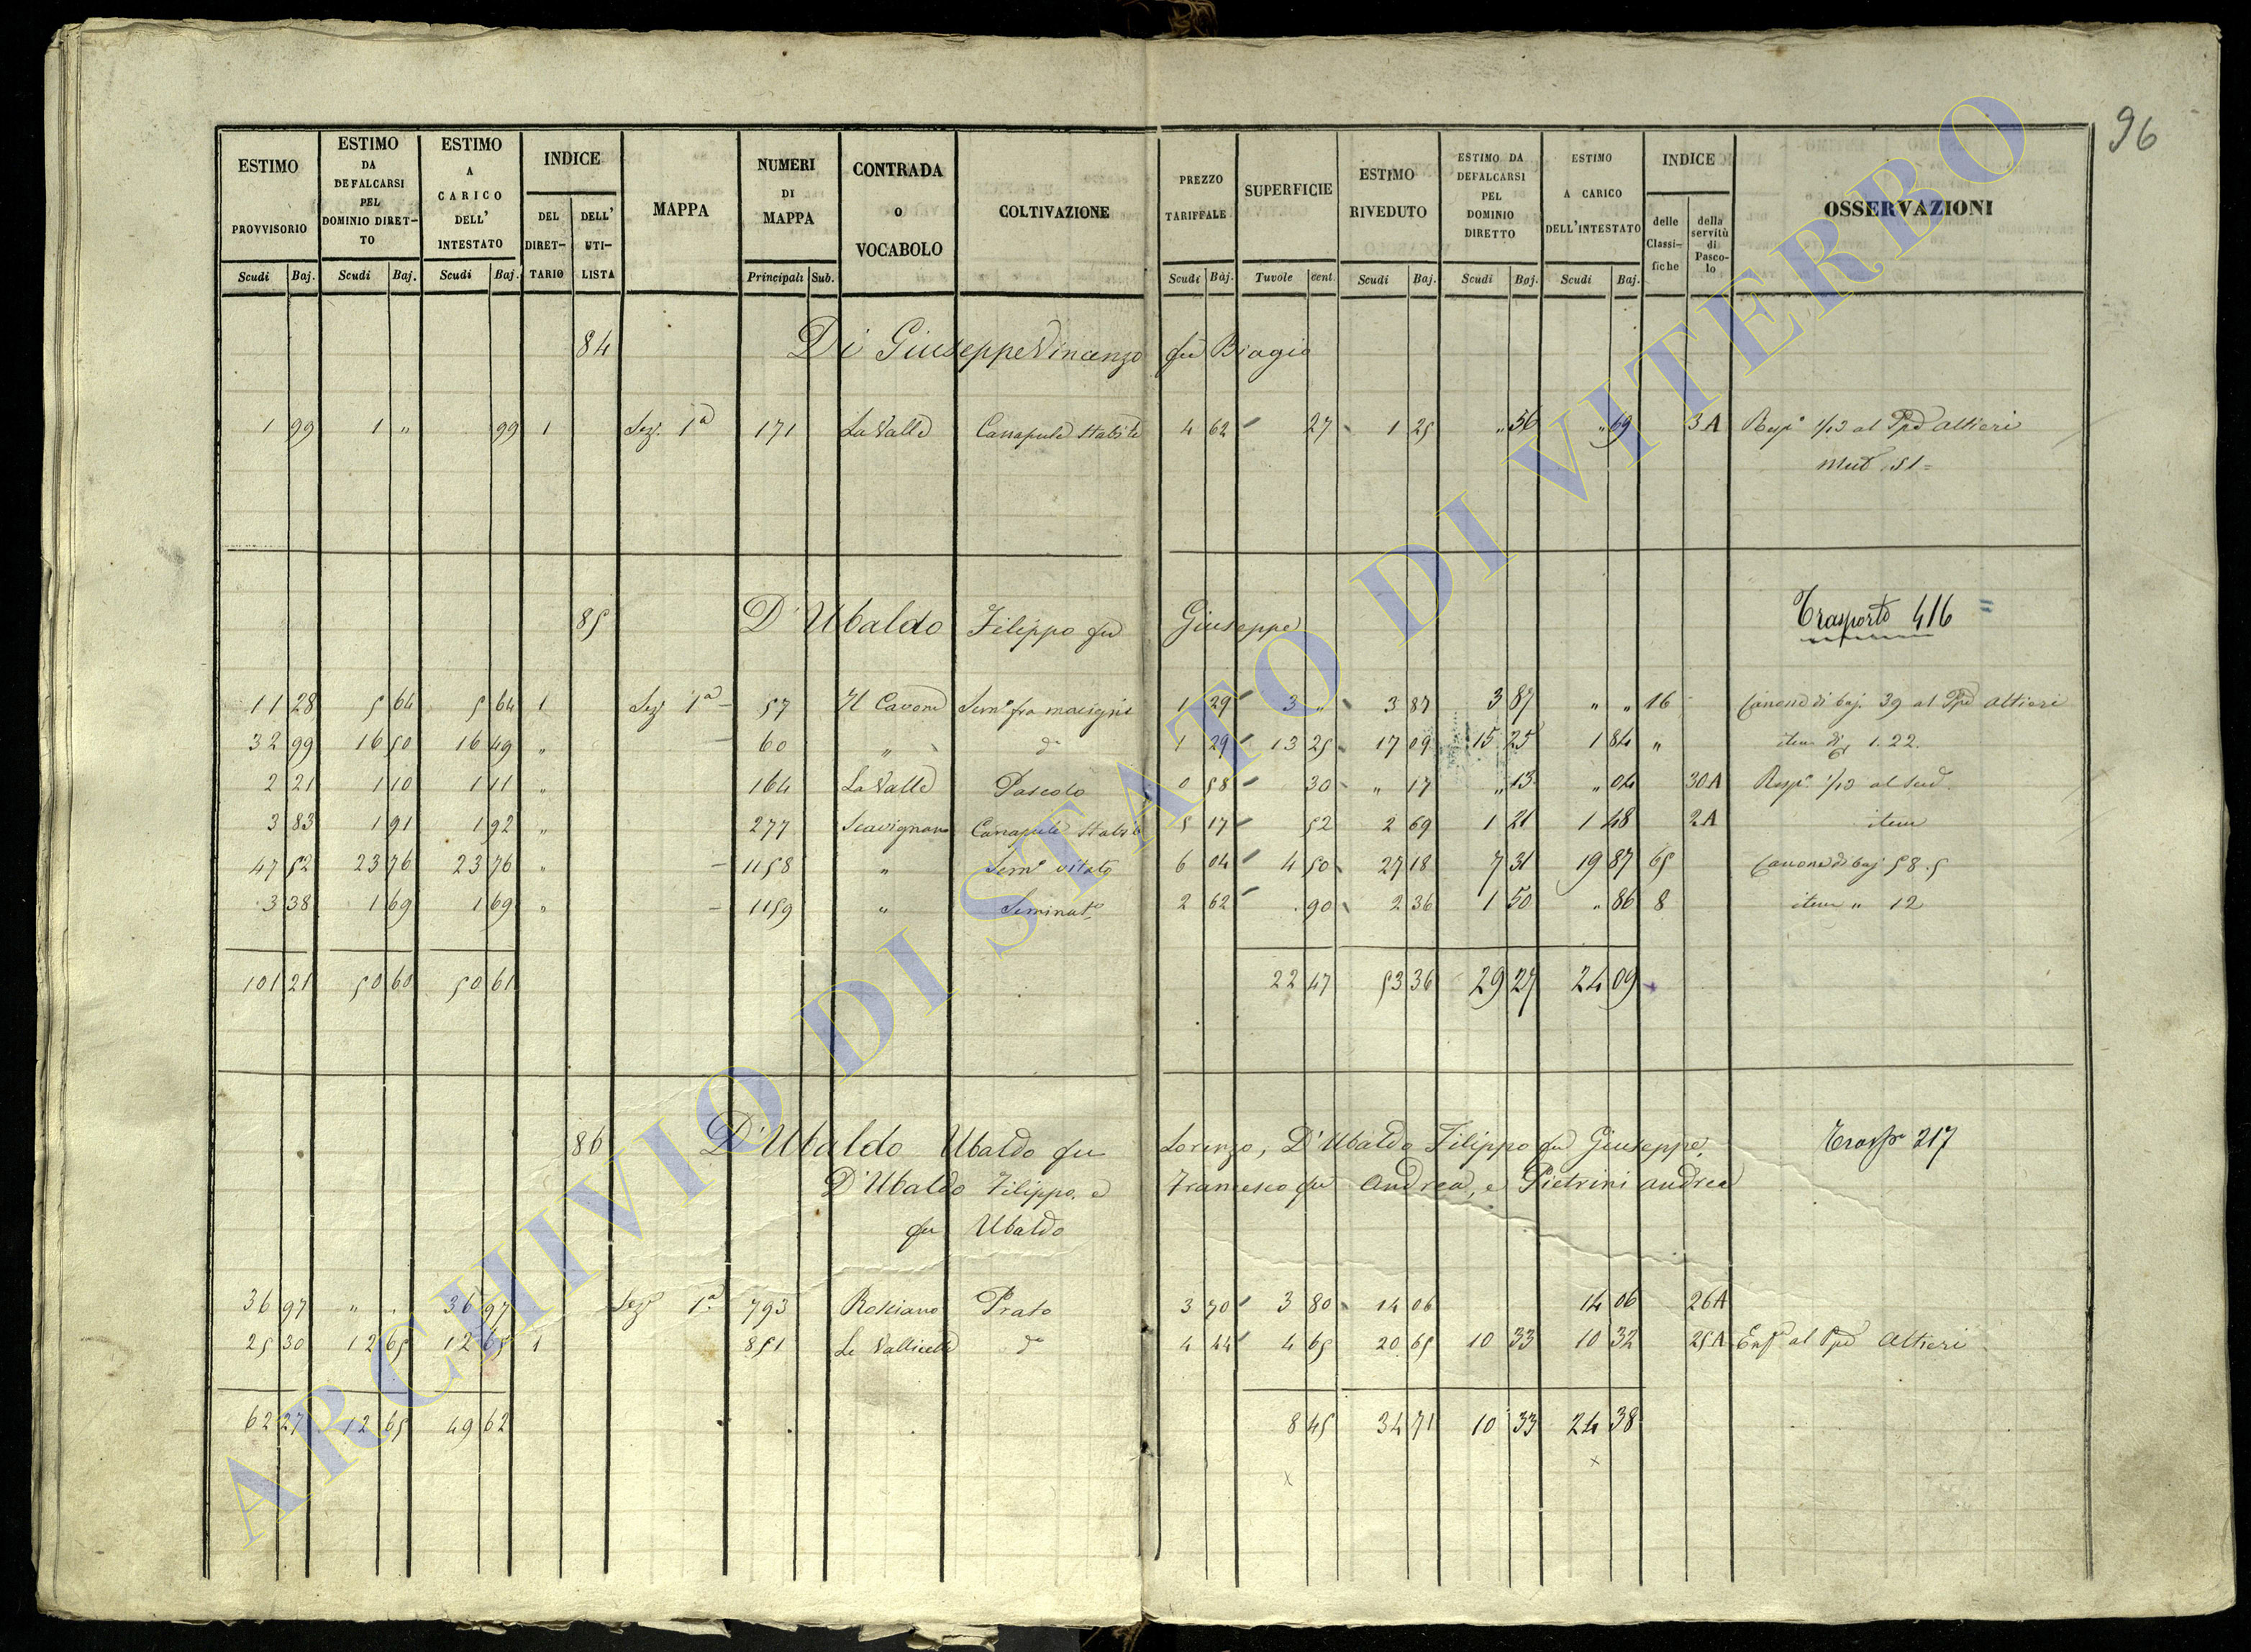 96
ESTIMO PROVVISORIO Scudi Baj.
ESTIMO DA DEFALCARSI PEL DOMINIO DIRET-TO Scudi Baj.
ESTIMO A CARICO DELL' INTESTATO Scudi Baj.
INDICE DEL DIRET-TARIO DELL' UTI-LISTA
MAPPA
NUMERI DI MAPPA Principali Sub.
CONTRADA O VOCABOLO
COLTIVAZIONE
PREZZO TARIFFALE Scudi Baj.
SUPERFICIE Tavole cent.
ESTIMO RIVEDUTO Scudi Baj.
ESTIMO DA DEFALCARSI PEL DOMINIO DIRETTO Scudi Baj.
ESTIMO A CARICO DELL'INTESTATO Scudi Baj.
INDICE delle Classi-fiche della servitù di Pasco-lo
OSSERVAZIONI
84 Di Giuseppe Vincenzo fu Biagio
1 99 1 " 99 1 Sez. 1a 171 La Valle Canapule stabile 4 62 27 1 25 " 56 " 69 3A Risp. 1/13 al Ppe Altieri
Mut. 51=
85 D'Ubaldo Filippo fu Giuseppe Trasporto 416 =
11 28 5 64 5 64 1 Sez. 1a 57 Il Cavone Semo fra macigni 1 29 3 " 3 87 3 87 " " 16 Canone di baj. 39 al Ppe Altieri
32 99 16 50 16 49 " 60 " do 1 29 13 25 17 09 15 25 1 84 " item di 1.22.
2 21 1 10 1 11 " 164 La Valle Pascolo 0 58 30 " 17 " 13 " 04 30A Risp. 1/13 al sud.
3 83 1 91 1 92 " 277 Scavignano Canapule stabile 5 17 52 2 69 1 21 1 48 2A item
47 52 23 76 23 76 " 1158 " Semo vitato 6 04 4 50 27 18 7 31 19 87 65 Canone di baj 58.5
3 38 1 69 1 69 " 1159 " Seminato 2 62 . 90 2 36 1 50 " 86 8 item " 12
101 21 50 60 50 61 22 47 53 36 29 27 24 09
86 D'Ubaldo Ubaldo fu Lorenzo, D'Ubaldo Filippo fu Giuseppe, Traspo 217
D'Ubaldo Filippo e Francesco fu Andrea, e Pietrini Andrea
fu Ubaldo
36 97 " . 36 97 Sez. 1a 793 Rosciano Prato 3 70 3 80 14 06 14 06 26A
25 30 12 65 12 65 1 851 Le Vallicelle do 4 44 4 65 20 65 10 33 10 32 25A Enf. al Ppe Altieri
62 27 12 65 49 62 8 45 34 71 10 33 24 38
ARCHIVIO DI STATO DI VITERBO